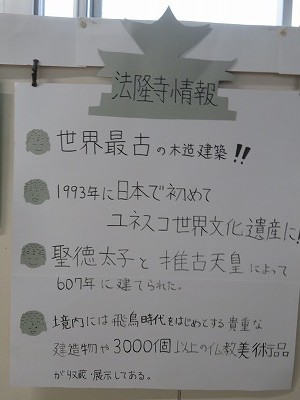 法隆寺情報
世界最古の木造建築!!
1993年に日本で初めて
ユネスコ世界文化遺産に!
聖徳太子と推古天皇によって
607年に建てられた。
境内には飛鳥時代をはじめとする貴重な
建造物や3000個以上の仏教美術品
が収蔵・展示してある。